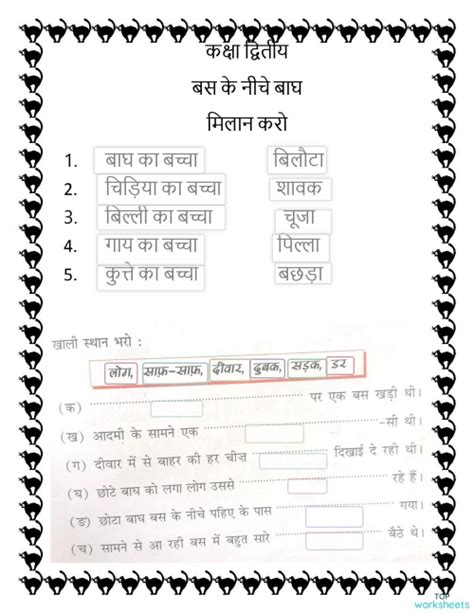 कक्षा द्वितीय
बस के नीचे बाघ
मिलान करो
1. बाघ का बच्चा बिलौटा
2. चिड़िया का बच्चा शावक
3. बिल्ली का बच्चा चूजा
4. गाय का बच्चा पिल्ला
5. कुत्ते का बच्चा बछड़ा
खाली स्थान भरो :
लोग, साफ़-साफ़, दीवार, दुबक, सड़क, डर
(क) पर एक बस खड़ी थी।
(ख) आदमी के सामने एक -सी थी।
(ग) दीवार में से बाहर की हर चीज़ दिखाई दे रही थी।
(घ) छोटे बाघ को लगा लोग उससे रहे हैं।
(ङ) छोटा बाघ बस के नीचे पहिए के पास गया।
(च) सामने से आ रही बस में बहुत सारे बैठे थे।
TOP
worksheets